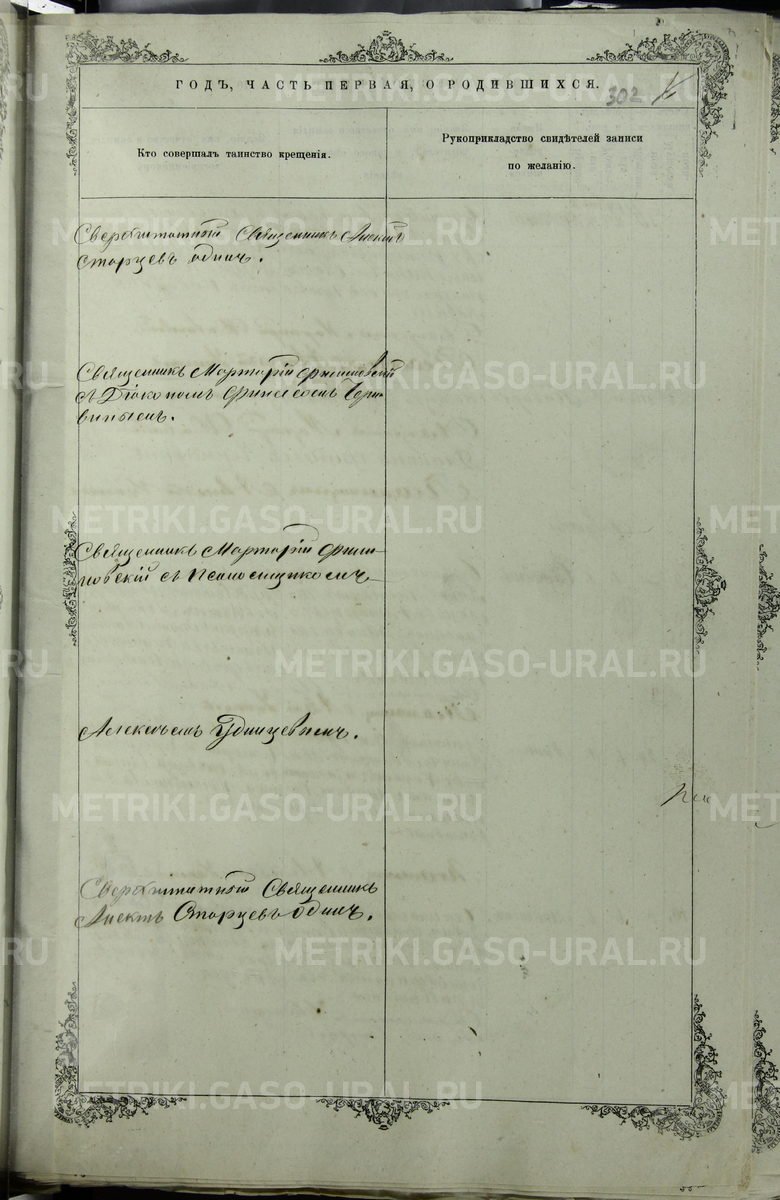 ГОДЪ, ЧАСТЬ ПЕРВАЯ, О РОДИВШИХСЯ.
302
Кто совершалъ таинство крещенія.
Рукоприкладство свидѣтелей записи
по желанію.
Сверхштатный Священникъ
Старцевъ одинъ.
Священникъ Мартирій
съ Діакономъ Финеесомъ
Священникъ Мартирій
новскій съ Псаломщикомъ
Алексѣемъ Удинцевымъ.
Сверхштатный Священникъ
Старцевъ одинъ.
METRIKI.GASO-URAL.RU